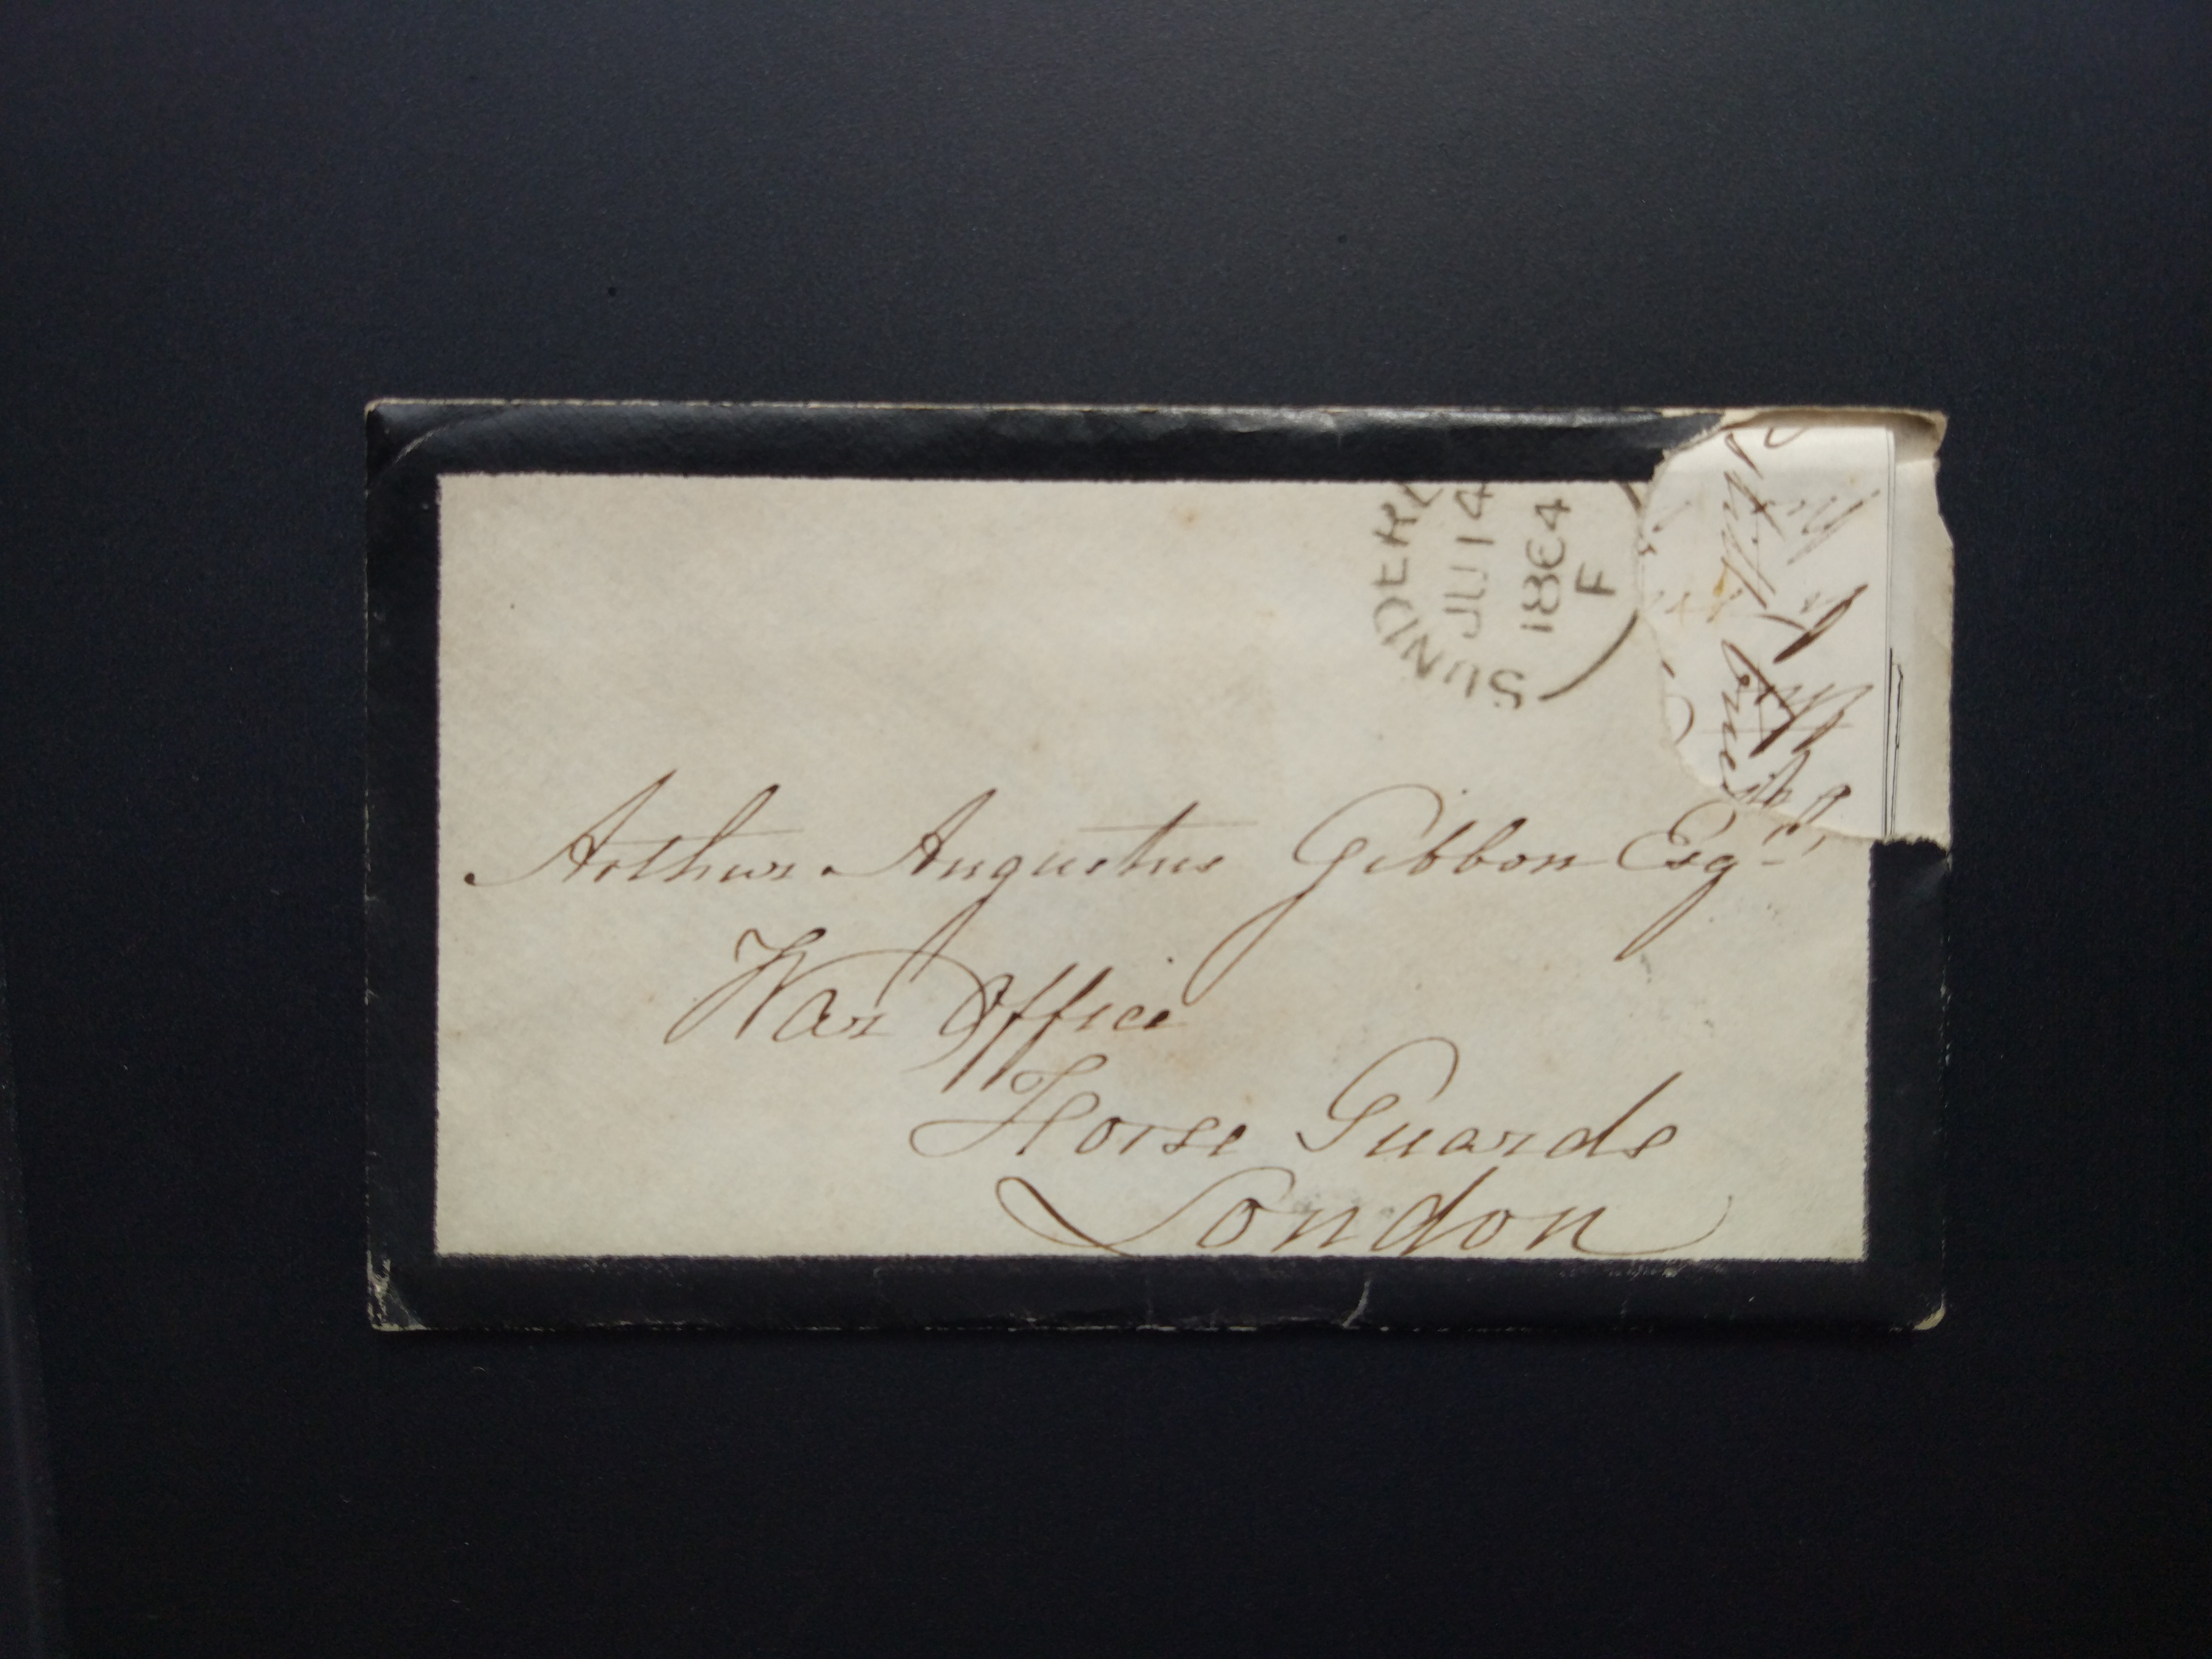 SUNDERL
JU 14
1864
F
Arthur Augustus Gibbon Esqr.
War Office
Horse Guards
London